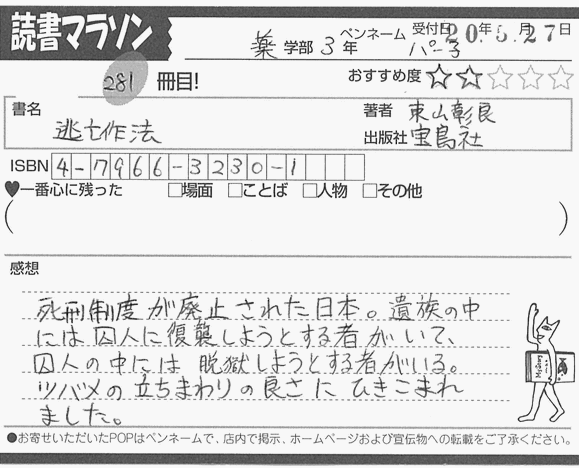 読書マラソン
薬 学部 3 年 ペンネーム パー子 受付日 20年5月27日
281 冊目! おすすめ度 ☆☆☆☆☆
書名 逃亡作法
著者 東山彰良
出版社 宝島社
ISBN 4-7966-3230-1
♥一番心に残った □場面 □ことば □人物 □その他
( )
感想
死刑制度が廃止された日本。遺族の中
には囚人に復讐しようとする者がいて、
囚人の中には脱獄しようとする者がいる。
ツバメの立ちまわりの良さにひきこまれ
ました。
●お寄せいただいたPOPはペンネームで、店内で掲示、ホームページおよび宣伝物への転載をご了承ください。